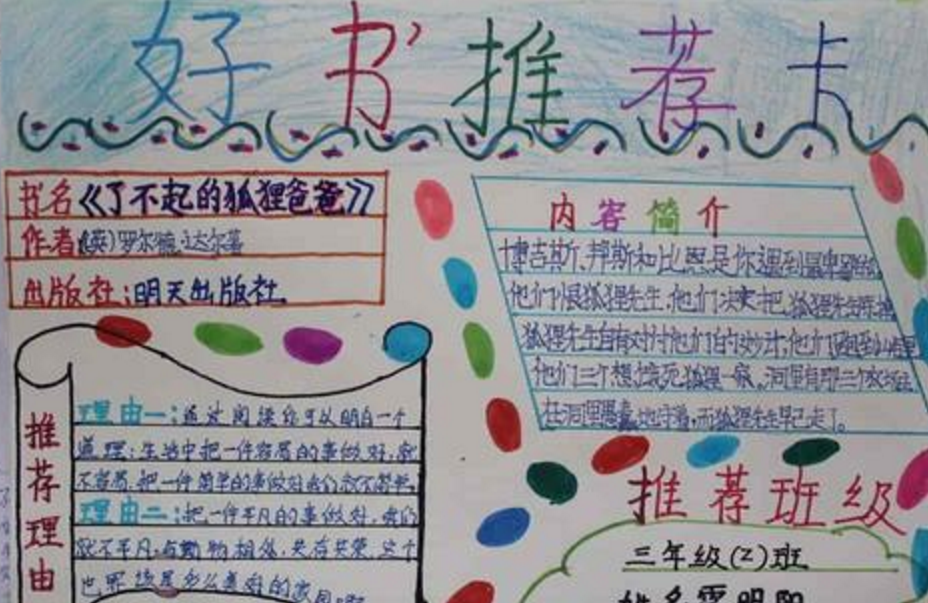 好书推荐卡
书名《了不起的狐狸爸爸》
作者(英)罗尔德·达尔著
出版社:明天出版社
内容简介
博吉斯、邦斯和比恩是你遇到最卑鄙的
他们恨狐狸先生,他们决定把狐狸先生
狐狸先生自有对付他们的妙计,他们
他们三个想饿死狐狸一家。洞里有那三个
在洞里愚蠢地守着,而狐狸先生早已走了。
推荐理由
理由一:通过阅读你可以明白一个
道理:生活中把一件容易的事做好,就
不容易,把一件简单的事做好我们就不简单。
理由二:把一件平凡的事做好,我们
就不平凡。与动物相处,共存共荣,这个
世界该是多么美好的家园啊
推荐班级
三年级(2)班
姓名 明阳